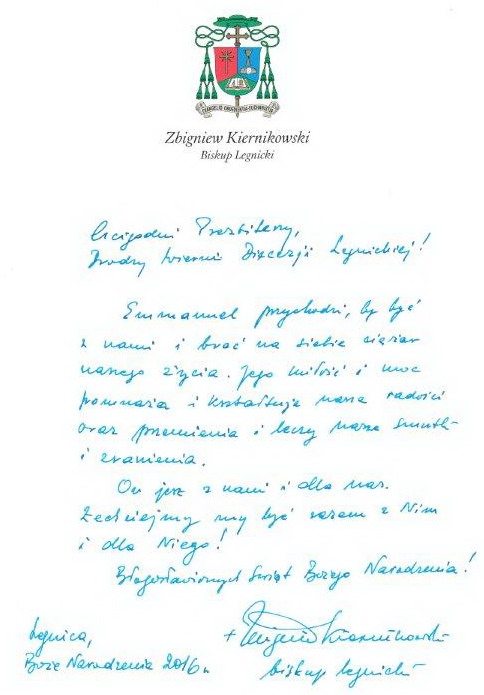 Zbigniew Kiernikowski
Biskup Legnicki
Czcigodni Prezbiterzy,
Drodzy wierni Diecezji Legnickiej!
Emmanuel przychodzi, by być
z nami i brać na siebie ciężar
naszego życia. Jego miłość i moc
pomnaża i kształtuje nasze radości
oraz przemienia i leczy nasze smutki
i zranienia.
On jest z nami i dla nas.
Zechciejmy my być razem z Nim
i dla Niego!
Błogosławionych Świąt Bożego Narodzenia!
Legnica,
Boże Narodzenie 2016 r.
+ Zbigniew Kiernikowski
biskup legnicki